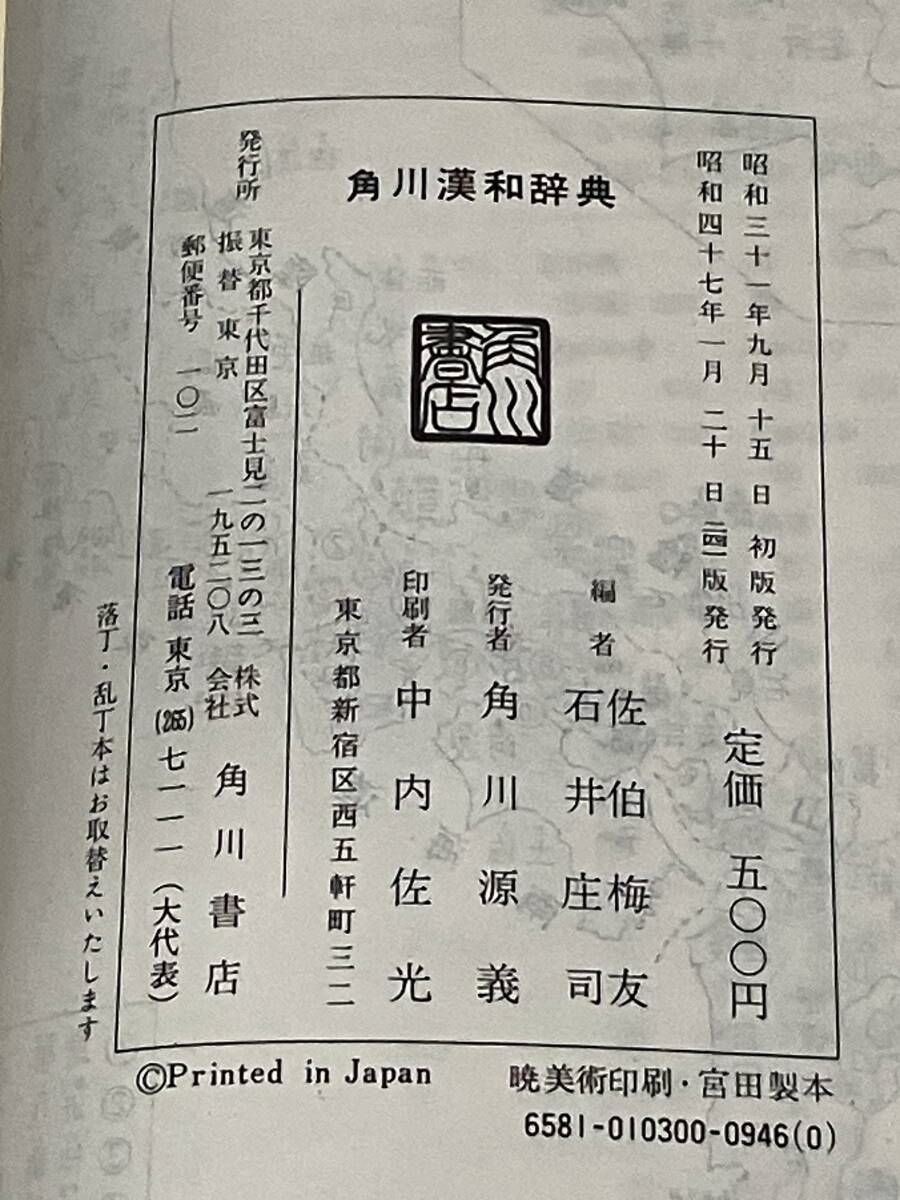 角川漢和辞典
昭和三十一年九月十五日 初版発行
昭和四十七年一月二十日 二四一版発行
定価 五〇〇円
角川書店
編者 佐伯梅友
石井庄司
発行者 角川源義
印刷者 中内佐光
東京都新宿区西五軒町三二
発行所 東京都千代田区富士見二の一三の三 株式会社 角川書店
振替東京 一九五二〇八
郵便番号 一〇二 電話 東京(265)七一一一(大代表)
落丁・乱丁本はお取替えいたします
©Printed in Japan
暁美術印刷・宮田製本
6581-010300-0946(0)